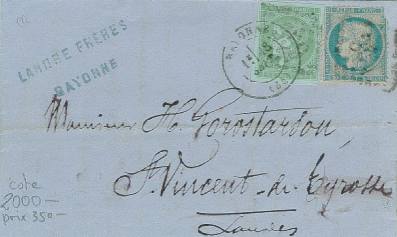 LANDRE FRÈRES
BAYONNE
BAYONNE
Monsieur H. Gorostarson
St. Vincent-de-Tyrosse
Landes
cote
2000-
prix 350-